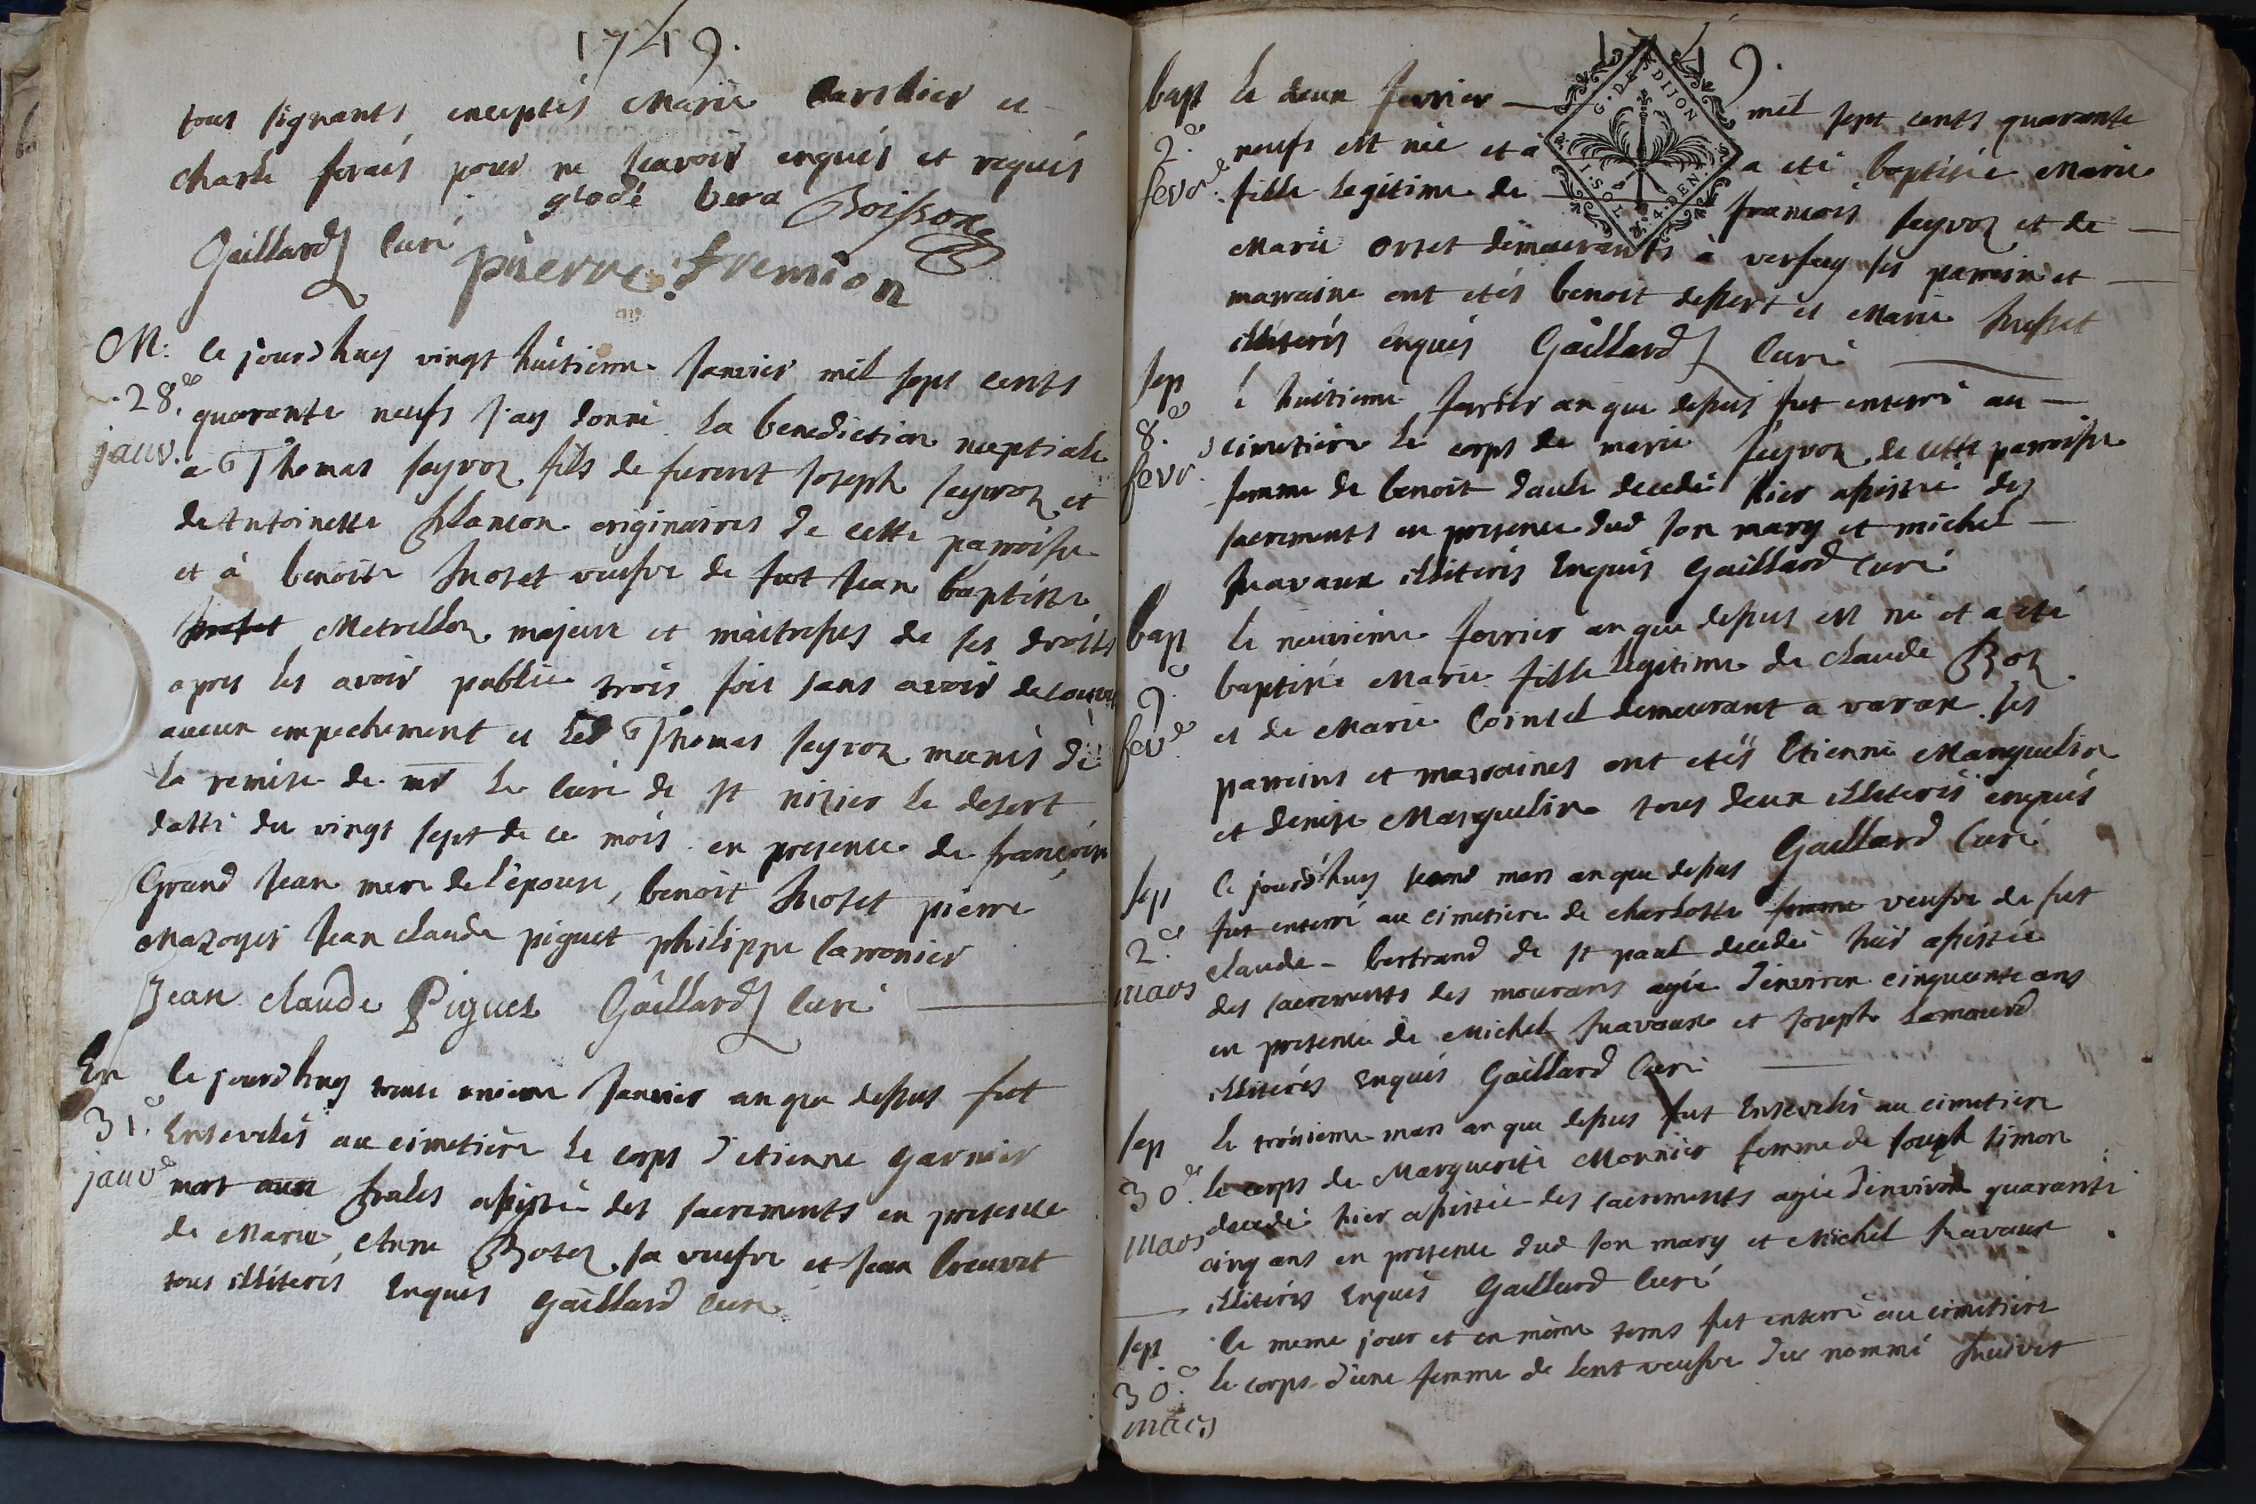 1749.
tous signants exceptés Marie et
charle ferais pour ne scavoir enquis et requis
glode bera Boisson
Gaillard Curé
pierre fremion
M: ce jourdhuy vingt huitieme Janvier mil sept cents
28.e quarante neufs j'ay donné la benediction neuptiale
janv. a Thomas seyvoz fils de furent Joseph seyvoz et
de Antoinette originaires de cette parroisse
et à benoite veufve de fut Jean baptiste
Metrillioz majeure et maitresses de ses droits
apres les avoir publié trois fois sans avoir decouvert
aucun empechement et led Thomas seyvoz munis de
la remise de mr le curé de st nizier le desert
datté du vingt sept de ce mois en presence de françoise
Grand Jean mere de l'épouse, benoit pierre
Mazoyer Jean claude piguet philippe carronier
Jean claude Piguet Gaillard Curé
En le jourdhuy trente unieme Janvier an que dessus fut
31.e Ensevelis au cimetière le corps d'etienne garnier
janv.e mort aux assisté des sacrements en presence
de Marie Anne Bozez sa veufve et Jean brevet
tous illiterés Enquis gaillard Curé
1749.
G. DE DIJON
1. SOL 4. DEN.
bapt le deux fevrier mil sept cents quarante
2.e neufs est née et à a eté baptisée Marie
fevr.e fille legitime de françois seyvoz et de
Marie ortet demeurants à versey ses parrein et
marraine ont etés benoit dessert et Marie
illiterés enquis Gaillard Curé
sep l huitieme fevrier an que dessus fut enterré au
8.e cimetiere le corps de marie seyvoz de cette parroisse
fevr. femme de benoit daule decedée hier assistée des
sacrements en presence dud son mary et michel
illiterés Enquis Gaillard Curé
bap le neuvieme fevrier an que dessus est né et a eté
9.e baptisé Marie fille legitime de claude Boz
fev.e et de Marie Cointel demeurant a varax ses
parreins et marraines ont etés Etienne Manguelin
et denise Manguelin tous deux illiterés enquis
Gaillard Curé
sep Ce jourd'huy second mars an que dessus
2.e fut enterré au cimetiere de charlotte femme veufve de fut
mars claude bertrand de st paul decedée hier assistée
des sacrements des mourans agée d'environ cinquante ans
en presence de Michel et Joseph
illiterés Enquis Gaillard Curé
sep le troisieme mars an que dessus fut Ensevelis au cimetiere
30.e le corps de Marguerite Monnier femme de Joseph simon
mars decedé hier assistée des sacrements agée d'environ quarante
cinq ans en presence dud son mary et Michel
illiterés Enquis Gaillard Curé
sep le meme jour et en même tems fut enterré au cimetiere
30.e le corps d'une femme de Lent veufve du nommé
mars